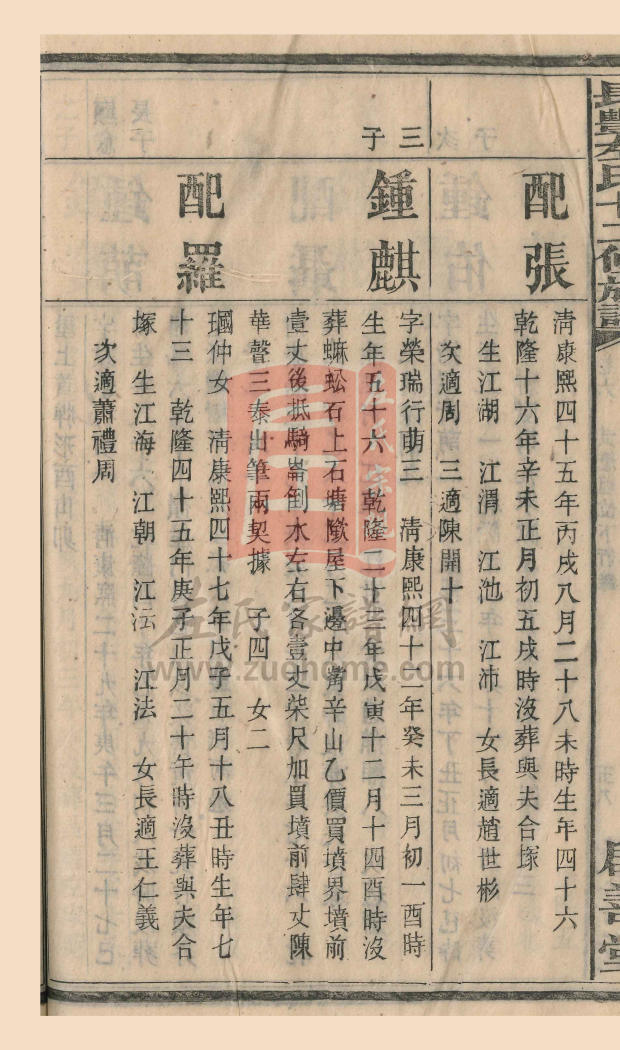 長豐左氏十二修族譜
居善堂
配張
清康熙四十五年丙戌八月二十八未時生年四十六
乾隆十六年辛未正月初五戌時沒葬與夫合塚
生江湖 江渭 江池 江沛 女長適趙世彬
次適周 三適陳開十
三子
鍾麒
字榮瑞行萌三 清康熙四十二年癸未三月初一酉時
生年五十六 乾隆二十三年戊寅十二月十四酉時沒
葬蜥蚣石上石塘墩屋下邊中嘴辛山乙價買墳界墳前
壹丈後抵騎崙倒水左右各壹丈柴尺加買墳前肆丈陳
華聲三泰出筆兩契據 子四 女二
配羅
瑻仲女 清康熙四十七年戊子五月十八丑時生年七
十三 乾隆四十五年庚子正月二十午時沒葬與夫合
塚 生江海 江朝 江法 女長適王仁義
次適蕭禮周
左氏宗
左氏家譜網
www.zuohome.com